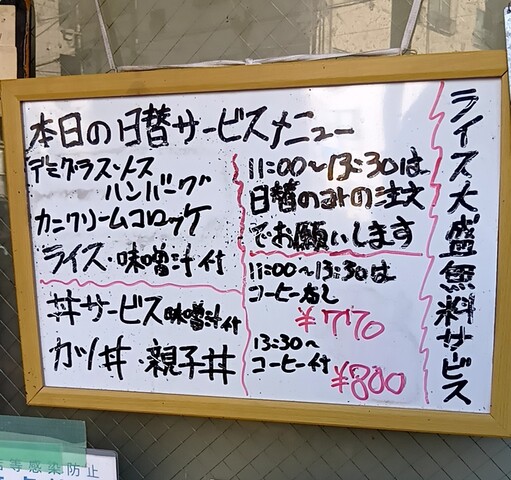 本日の日替サービスメニュー
デミグラスソース
ハンバーグ
カニクリームコロッケ
ライス・味噌汁付
丼サービス味噌汁付
カツ丼・親子丼
11:00〜13:30は
日替のみの注文
でお願いします
11:00〜13:30は
コーヒーなし
¥770
13:30〜
コーヒー付
¥800
ライス大盛無料サービス
等感染防止